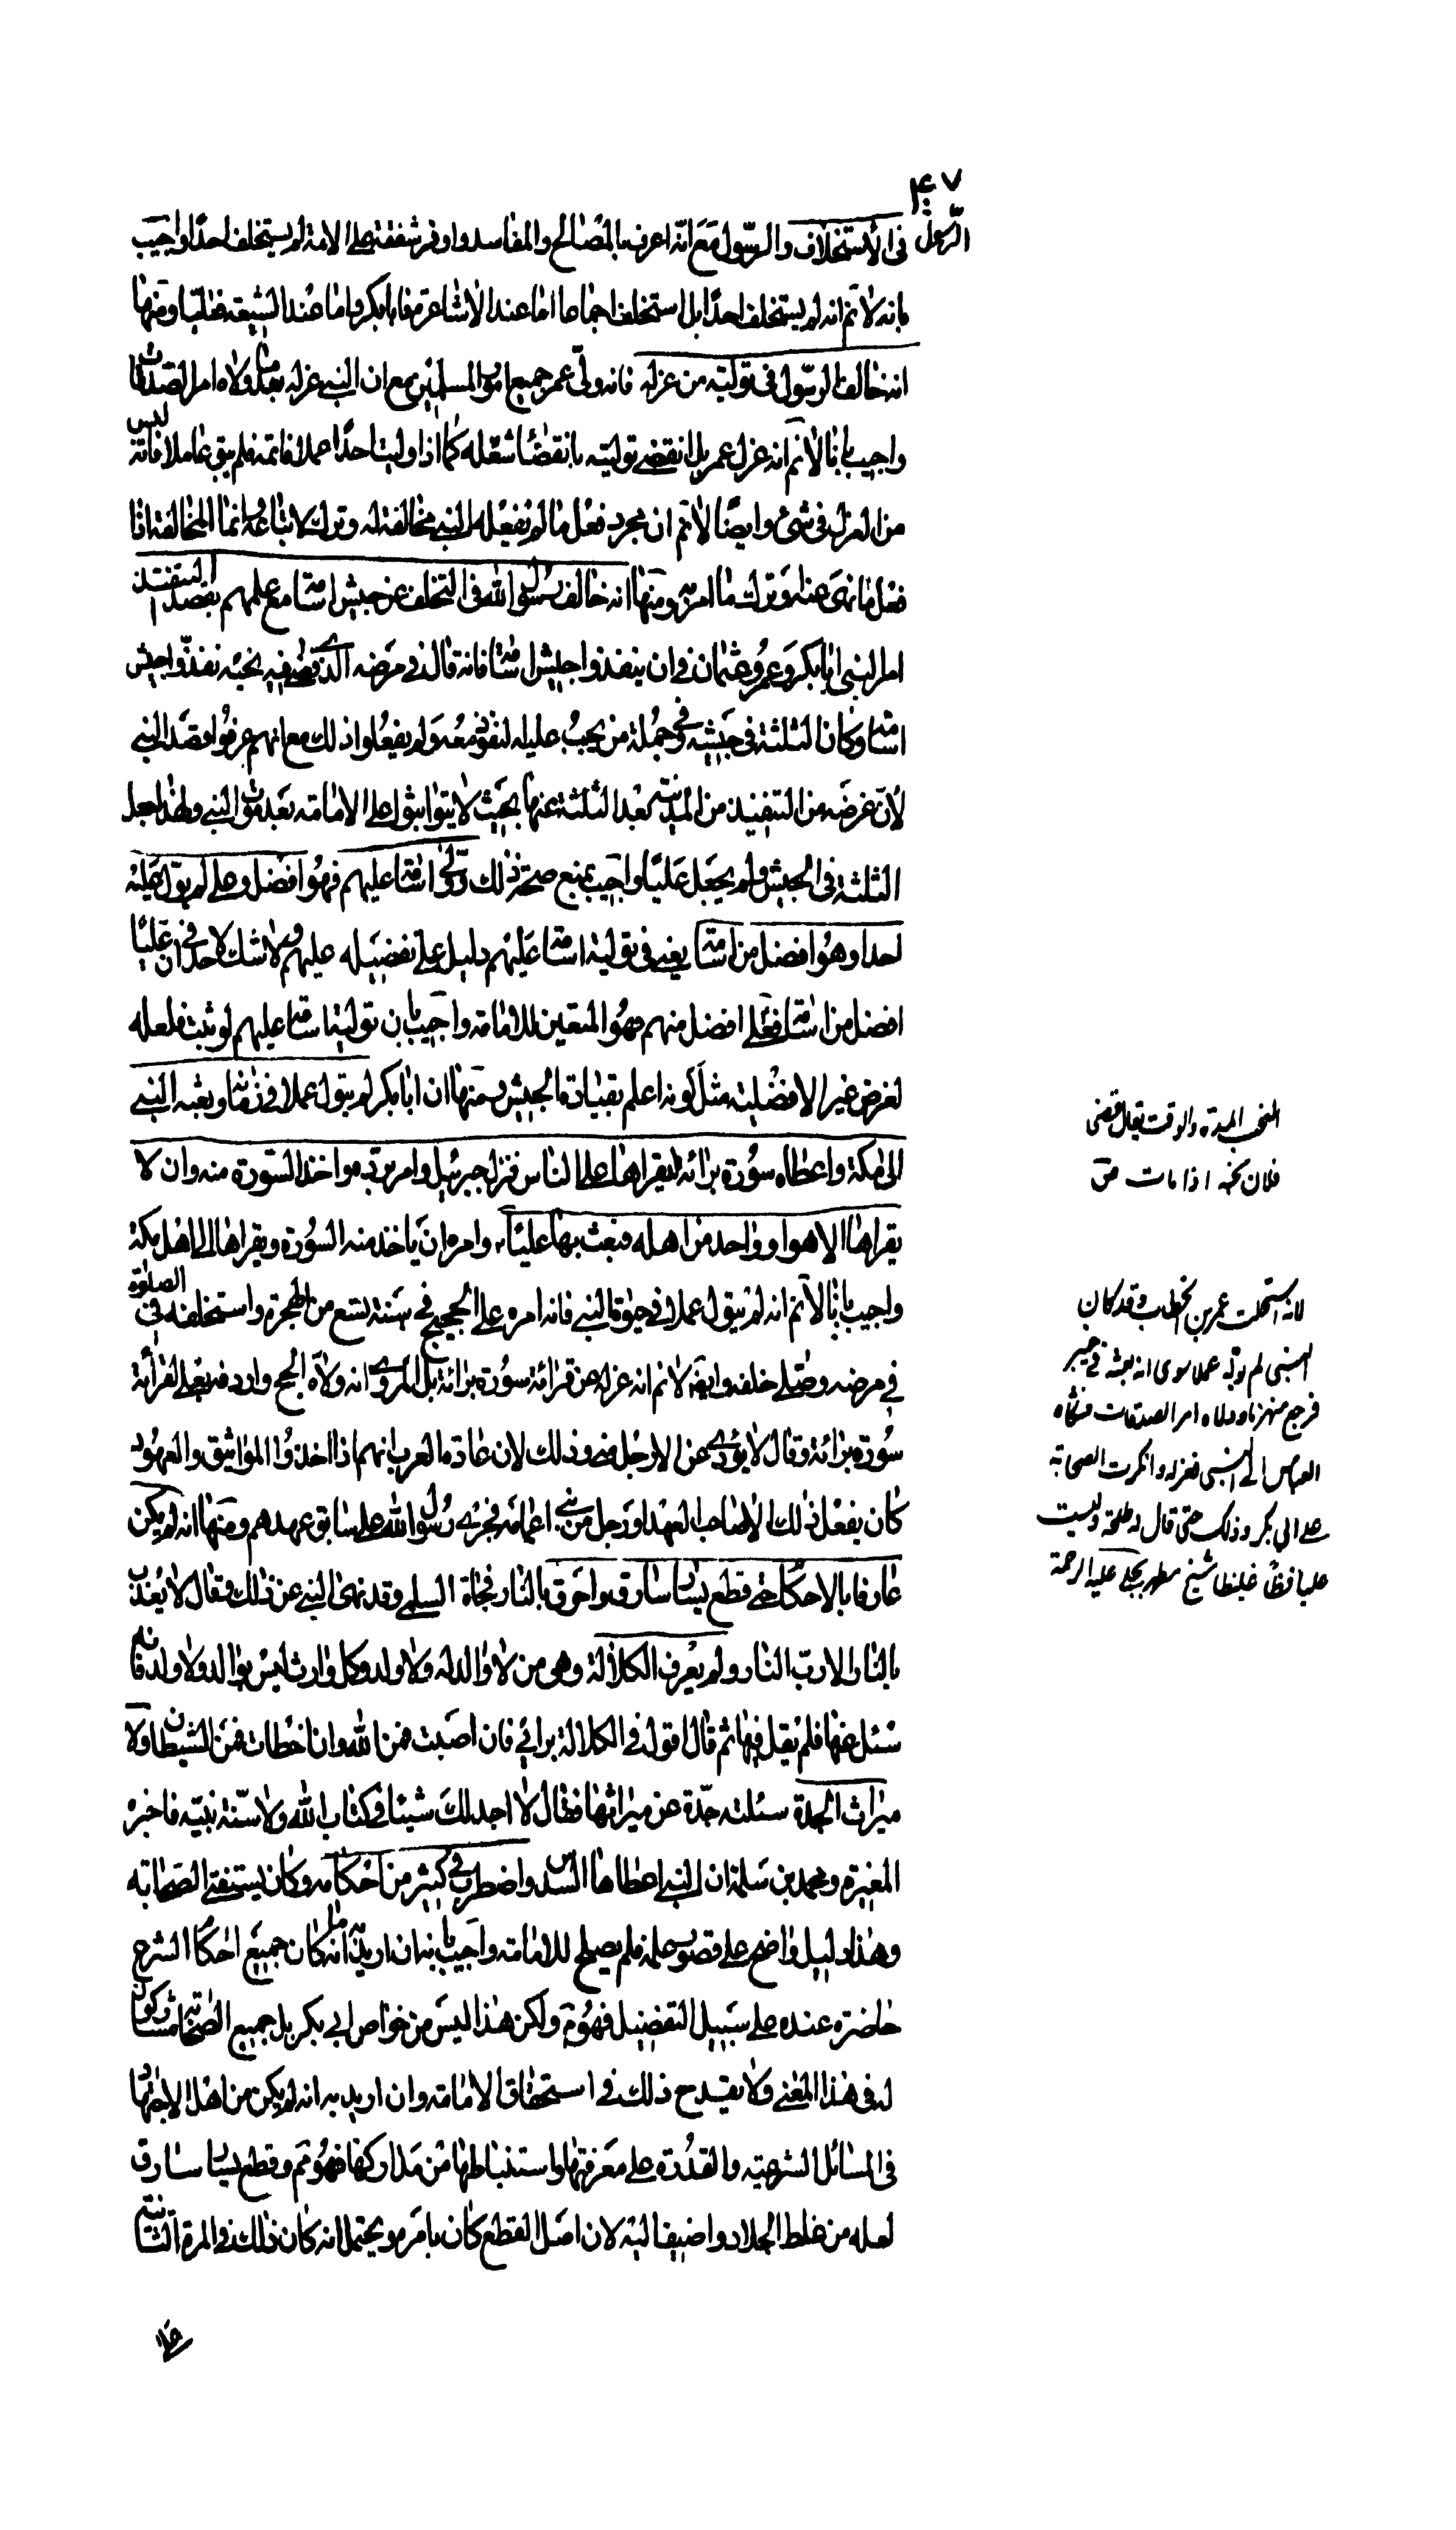 ۴۷
الرسول
في الاستخلاف والرسول مع انه اعرف بالمصالح والمفاسد واوفر شفقة على الامة لم يستخلف احدا واجيب
بانه لانم انه لم يستخلف احدا بل استخلف اجماعا اما عند الاشاعرة فابا بكر واما عند الشيعة فعليا ومنها
انه خالف الرسول في توليته من عزله فانه ولى عمر جميع امور المسلمين مع ان النبي عزله بعد ما ولاه امر الصدقات
واجيب بانا لانم انه عزل عمر بل انقضى توليته بانقضاء شغله كما اذا وليت احدا عملا فاتمه فلم يبق عاملا فانه ليس
من العزل في شئ وايضا لانم ان مجرد فعل ما لم يفعله النبي مخالفة له وترك لاتباعه وانما المخالفة اذا
فعل ما نهى عنه وترك ما امر به ومنها انه خالف رسول الله في التخلف عن جيش اسامة مع علمهم بقصد التنفيذ
امر النبي ابا بكر وعمر وعثمان في ان ينفذوا جيش اسامة فانه قال في مرضه الذي قضى فيه نحبه نفذوا جيش
اسامة وكان الثلثة في جيشه وفي جملة من يجب عليه النفوذ معه ولم يفعلوا ذلك مع انهم عرفوا قصد النبي
لان غرضه من التنفيذ من المدينة بعد الثلثة عنها بحيث لا يتواثبوا على الامامة بعد موت النبي ولهذا جعل
الثلثة في الجيش ولم يجعل عليا واجيب بمنع صحة ذلك وولى اسامة عليهم فهو افضل وعلى لم يول عليه
احدا وهو افضل من اسامة يعني في تولية اسامة عليهم دليل على تفضيله عليهم ولا شك لاحد في ان عليا
افضل من اسامة فعلى افضل منهم فهو المتعين للامامة واجيب بان تولية اسامة عليهم لو ثبت فلعله
لغرض غير الافضلية مثل كونه اعلم بقيادة الجيش ومنها ان ابا بكر لم يتول عملا في زمانه وبعثه النبي
الى مكة واعطاه سورة برائة ليقراها على الناس فنزل جبرئيل وامر برده واخذ السورة منه وان لا
يقراها الا هو او واحد من اهله فبعث بها عليا وامره ان ياخذ منه السورة ويقراها الى اهل مكة
واجيب بانا لانم انه لم يتول عملا في حيوة النبي فانه امره على الحجيج في سنة تسع من الهجرة واستخلفه في الصلوة
في مرضه وصلى خلفه وايضا لانم انه عزله عن قرائة سورة برائة بل المروي انه ولاه الحج واردفه بعلى لقرائة
سورة برائة وقال لا يؤدي عني الا رجل مني وذلك لان عادة العرب انهم اذا اخذوا المواثيق والعهود
كان يفعل ذلك الا صاحب العهد او رجل من بني اعمامه فجرى رسول الله على سابق عهدهم ومنها انه لم يكن
عارفا بالاحكام حتى قطع يسار سارق واحرق بالنار فجاة السلمي وقد نهى النبي عن ذلك وقال لا يعذب
بالنار الا رب النار ولم يعرف الكلالة وهو من لا والد له ولا ولد وكل وارث ليس بوالد ولا ولد فانه
سئل عنها فلم يقل فيها ثم قال اقول في الكلالة برائي فان اصبت فمن الله وان اخطات فمن الشيطان ولا
ميراث الجدة سئلته جدة عن ميراثها فقال لا اجد لك شيئا في كتاب الله ولا سنة نبيه فاخبره
المغيرة ومحمد بن سلمة ان النبي اعطاها السدس واضطرب في كثير من احكامه وكان يستفتي الصحابة
وهذا دليل واضح على قصور علمه فلم يصلح للامامة واجيب بانه ان اريد به انه ما كان جميع احكام الشرع
حاضرة عنده على سبيل التفصيل فهو م ولكن هذا ليس من خواص ابي بكر بل جميع الصحابة مشاركون
له في هذا المعنى ولا يقدح ذلك في استحقاق الامامة وان اريد به انه لم يكن من اهل الاجتهاد
في المسائل الشرعية والقدرة على معرفتها واستنباطها من مداركها فهو مم وقطع يسار سارق
لعله من غلط الجلاد واضيف اليه لان اصل القطع كان بامره ويحتمل انه كان ذلك في المرة الثانية
على
النحب المدة والوقت يقال قضى
فلان نحبه اذا مات ص
لانه استخلف عمر بن الخطاب وقد كان
النبي لم يوله عملا سوى انه بعثه في خيبر
فرجع منهزما وولاه امر الصدقات فشكاه
العباس الى النبي فعزله وانكرت الصحابة
على ابي بكر وذلك حتى قال له طلحة وليت
علينا فظا غليظا شيخ مطهر حلي عليه الرحمة